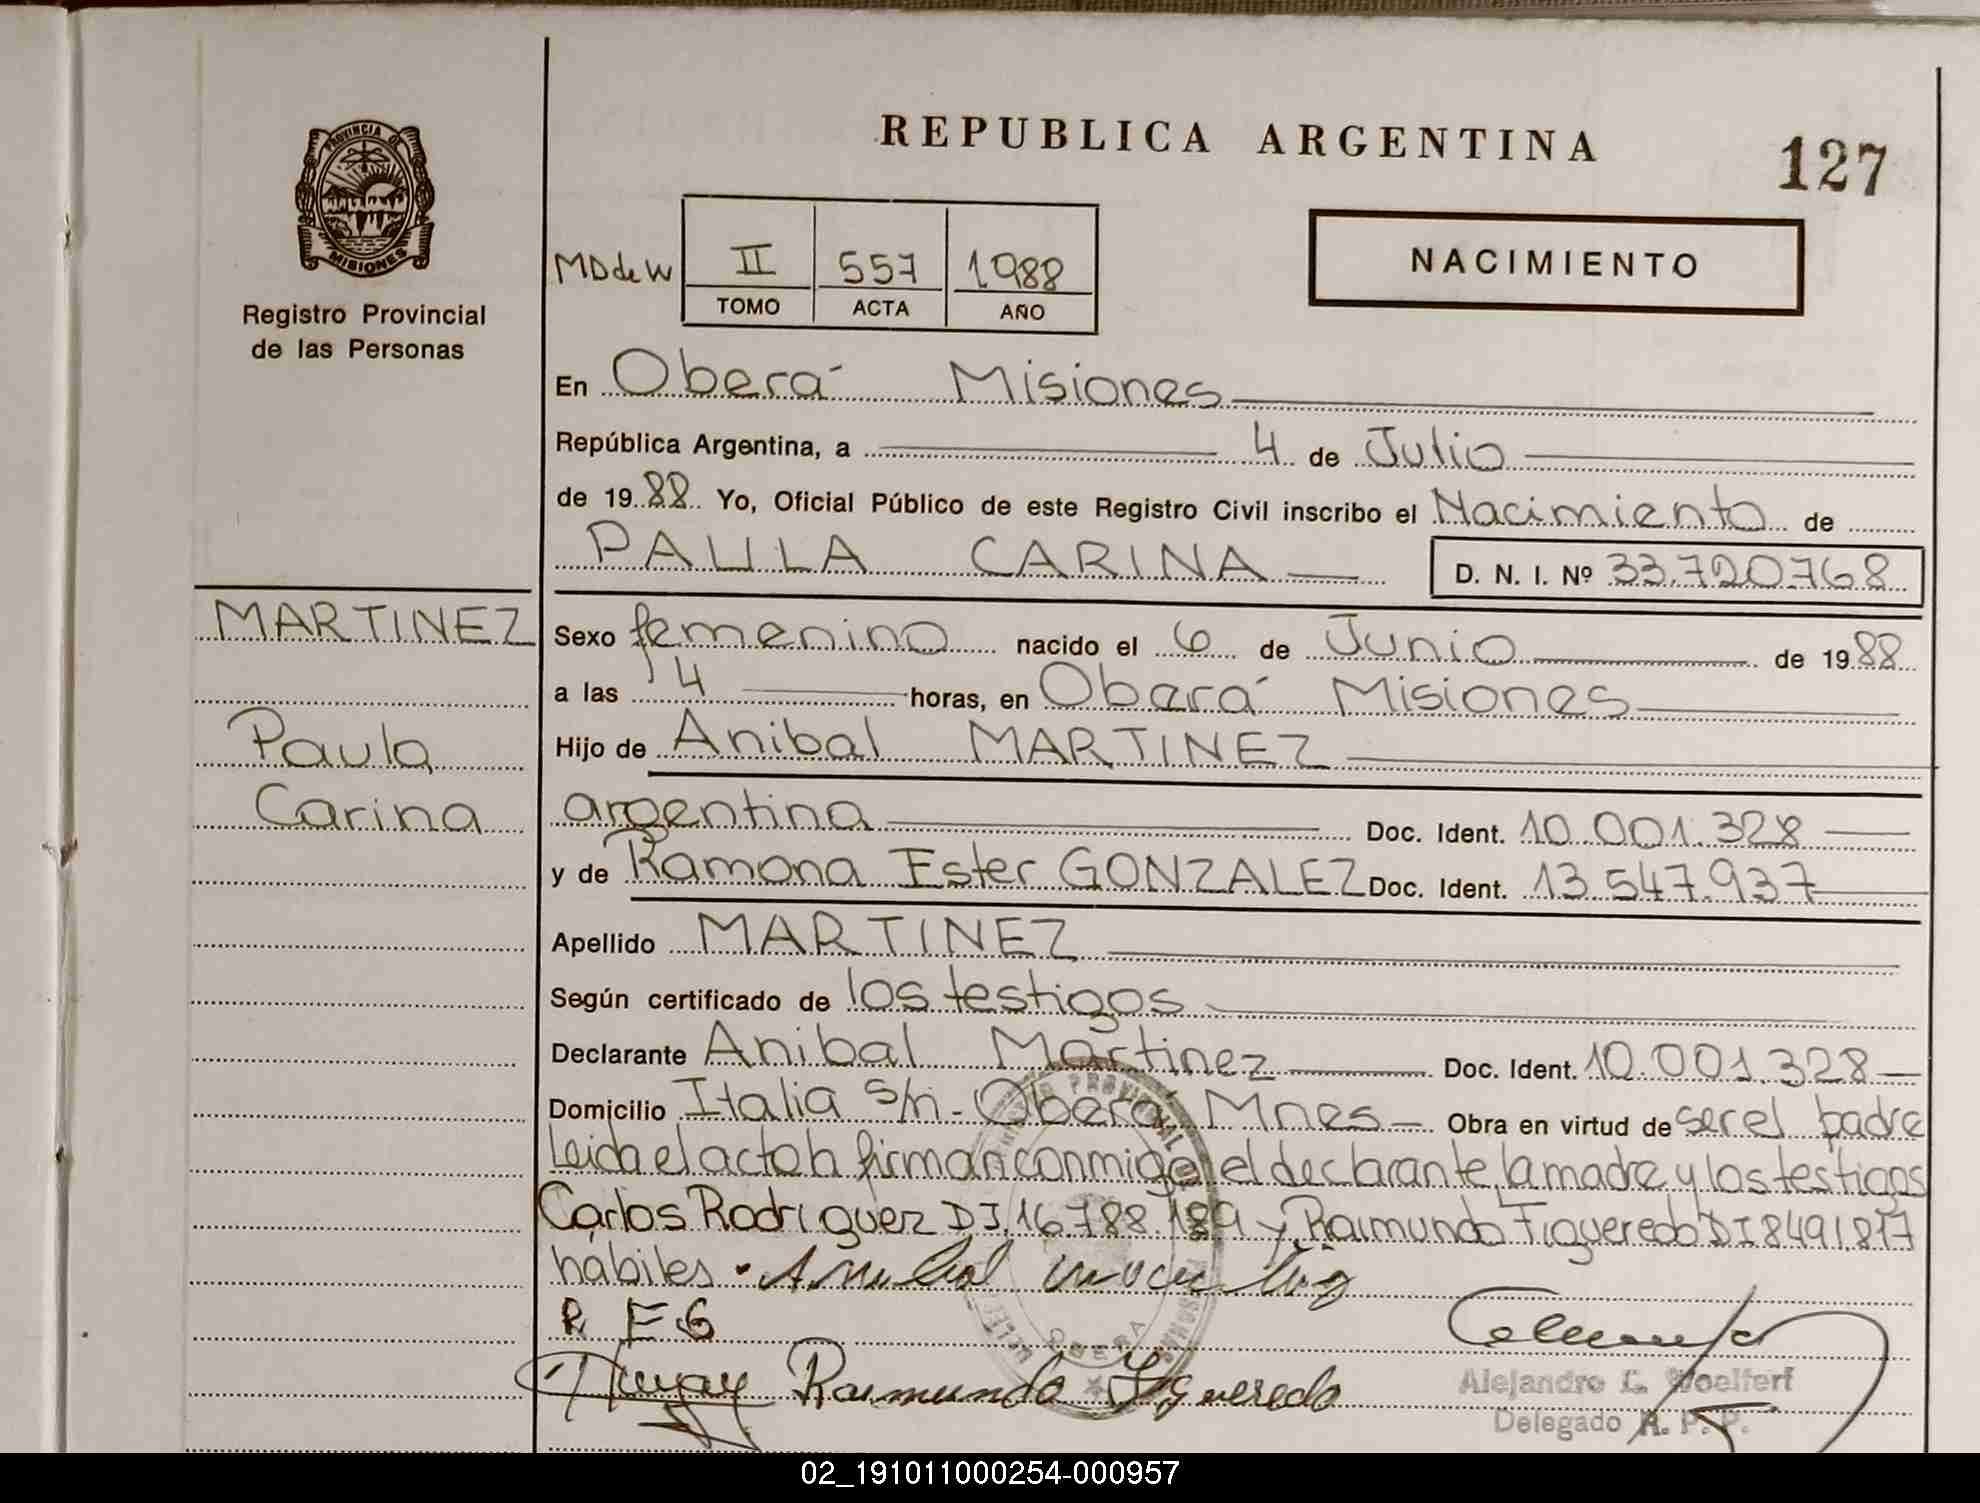 PROVINCIA DE
MISIONES
Registro Provincial
de las Personas
REPUBLICA ARGENTINA
127
MD de W
II
557
1988
TOMO
ACTA
AÑO
NACIMIENTO
En Oberá Misiones
República Argentina, a 4 de Julio
de 1988 Yo, Oficial Público de este Registro Civil inscribo el Nacimiento de
PAULA CARINA D. N. I. Nº 33.720.768
MARTINEZ
Paula
Carina
Sexo femenino nacido el 6 de Junio de 1988
a las 4 horas, en Oberá Misiones
Hijo de Anibal MARTINEZ
argentina Doc. Ident. 10.001.328
y de Ramona Ester GONZALEZ Doc. Ident. 13.547.937
Apellido MARTINEZ
Según certificado de los testigos
Declarante Anibal Martinez Doc. Ident. 10.001.328
Domicilio Italia s/n - Oberá Mnes - Obra en virtud de ser el padre
Leida el acta la firman conmigo el declarante, la madre y los testigos
Carlos Rodriguez D.I. 16.788.189 y Raimundo Figueredo DI 8491.817
habiles. Anibal
R E.G
Raimundo Figueredo
Alejandro C. Woelfert
Delegado R. P. P.
OBERA
02_191011000254-000957